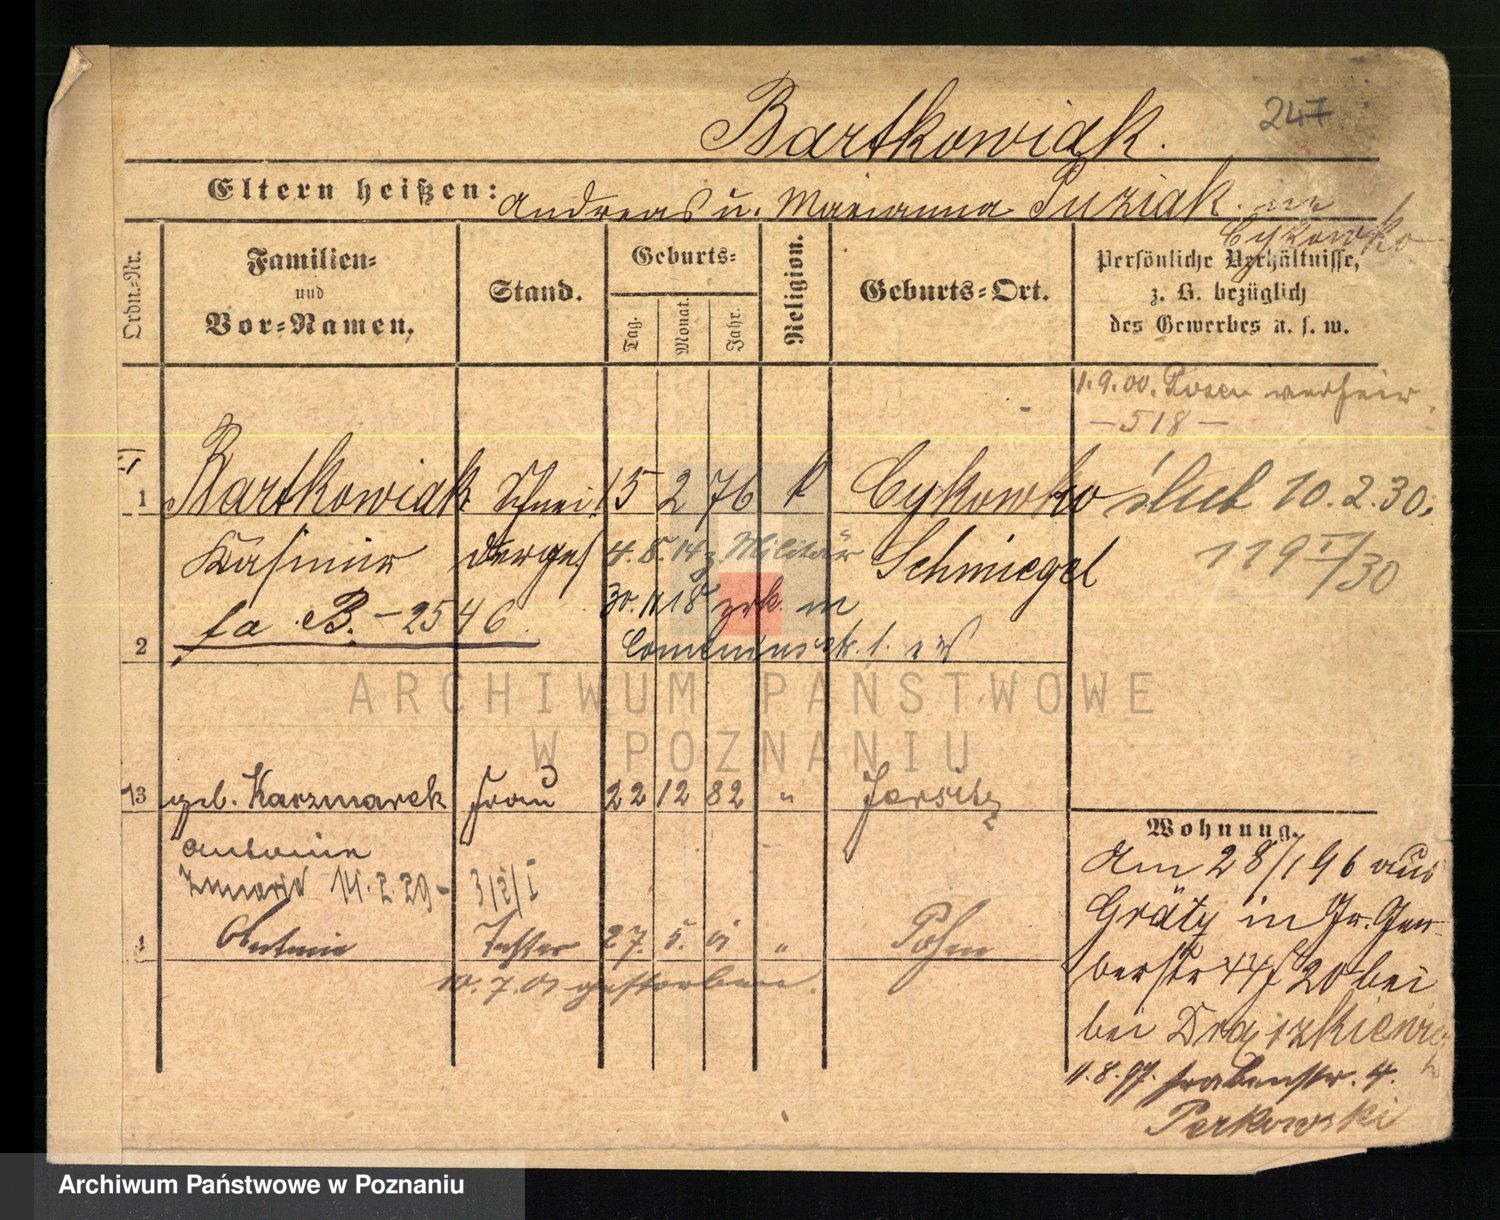 Bartkowiak.
247
Eltern heißen: Andreas u. Marianna Puziak in
Cykowko
Ordn.-Nr.
Familien-
und
Vor-Namen.
Stand.
Geburts-
Tag.
Monat.
Jahr.
Religion.
Geburts-Ort.
Persönliche Verhältnisse,
z. B. bezüglich
des Gewerbes u. s. w.
1.9.00. Posen verheir
- 518 -
1 Bartkowiak Schnei 15 2 76 k Cykowko ślub 10.2.30.
Kasimir derges 4.8.14 z Militär Schmiegel 119 /30
fa B. - 2546 30. 11 18 zrk. in
2
ARCHIWUM PAŃSTWOWE
W POZNANIU
3 geb. Kaczmarek Frau 22 12 82 " Jersitz
Antonie
zmarła 14.2.29 - 3/2/I
4 Tochter 27. 5. 01 " Posen
10.7.01 gestorben.
Wohnung.
Am 28/1 96 aus
Grätz in Gr. Ger-
berstr 44/20 bei
bei
11.8.97. Grabenstr. 4.
Perkowski
Archiwum Państwowe w Poznaniu